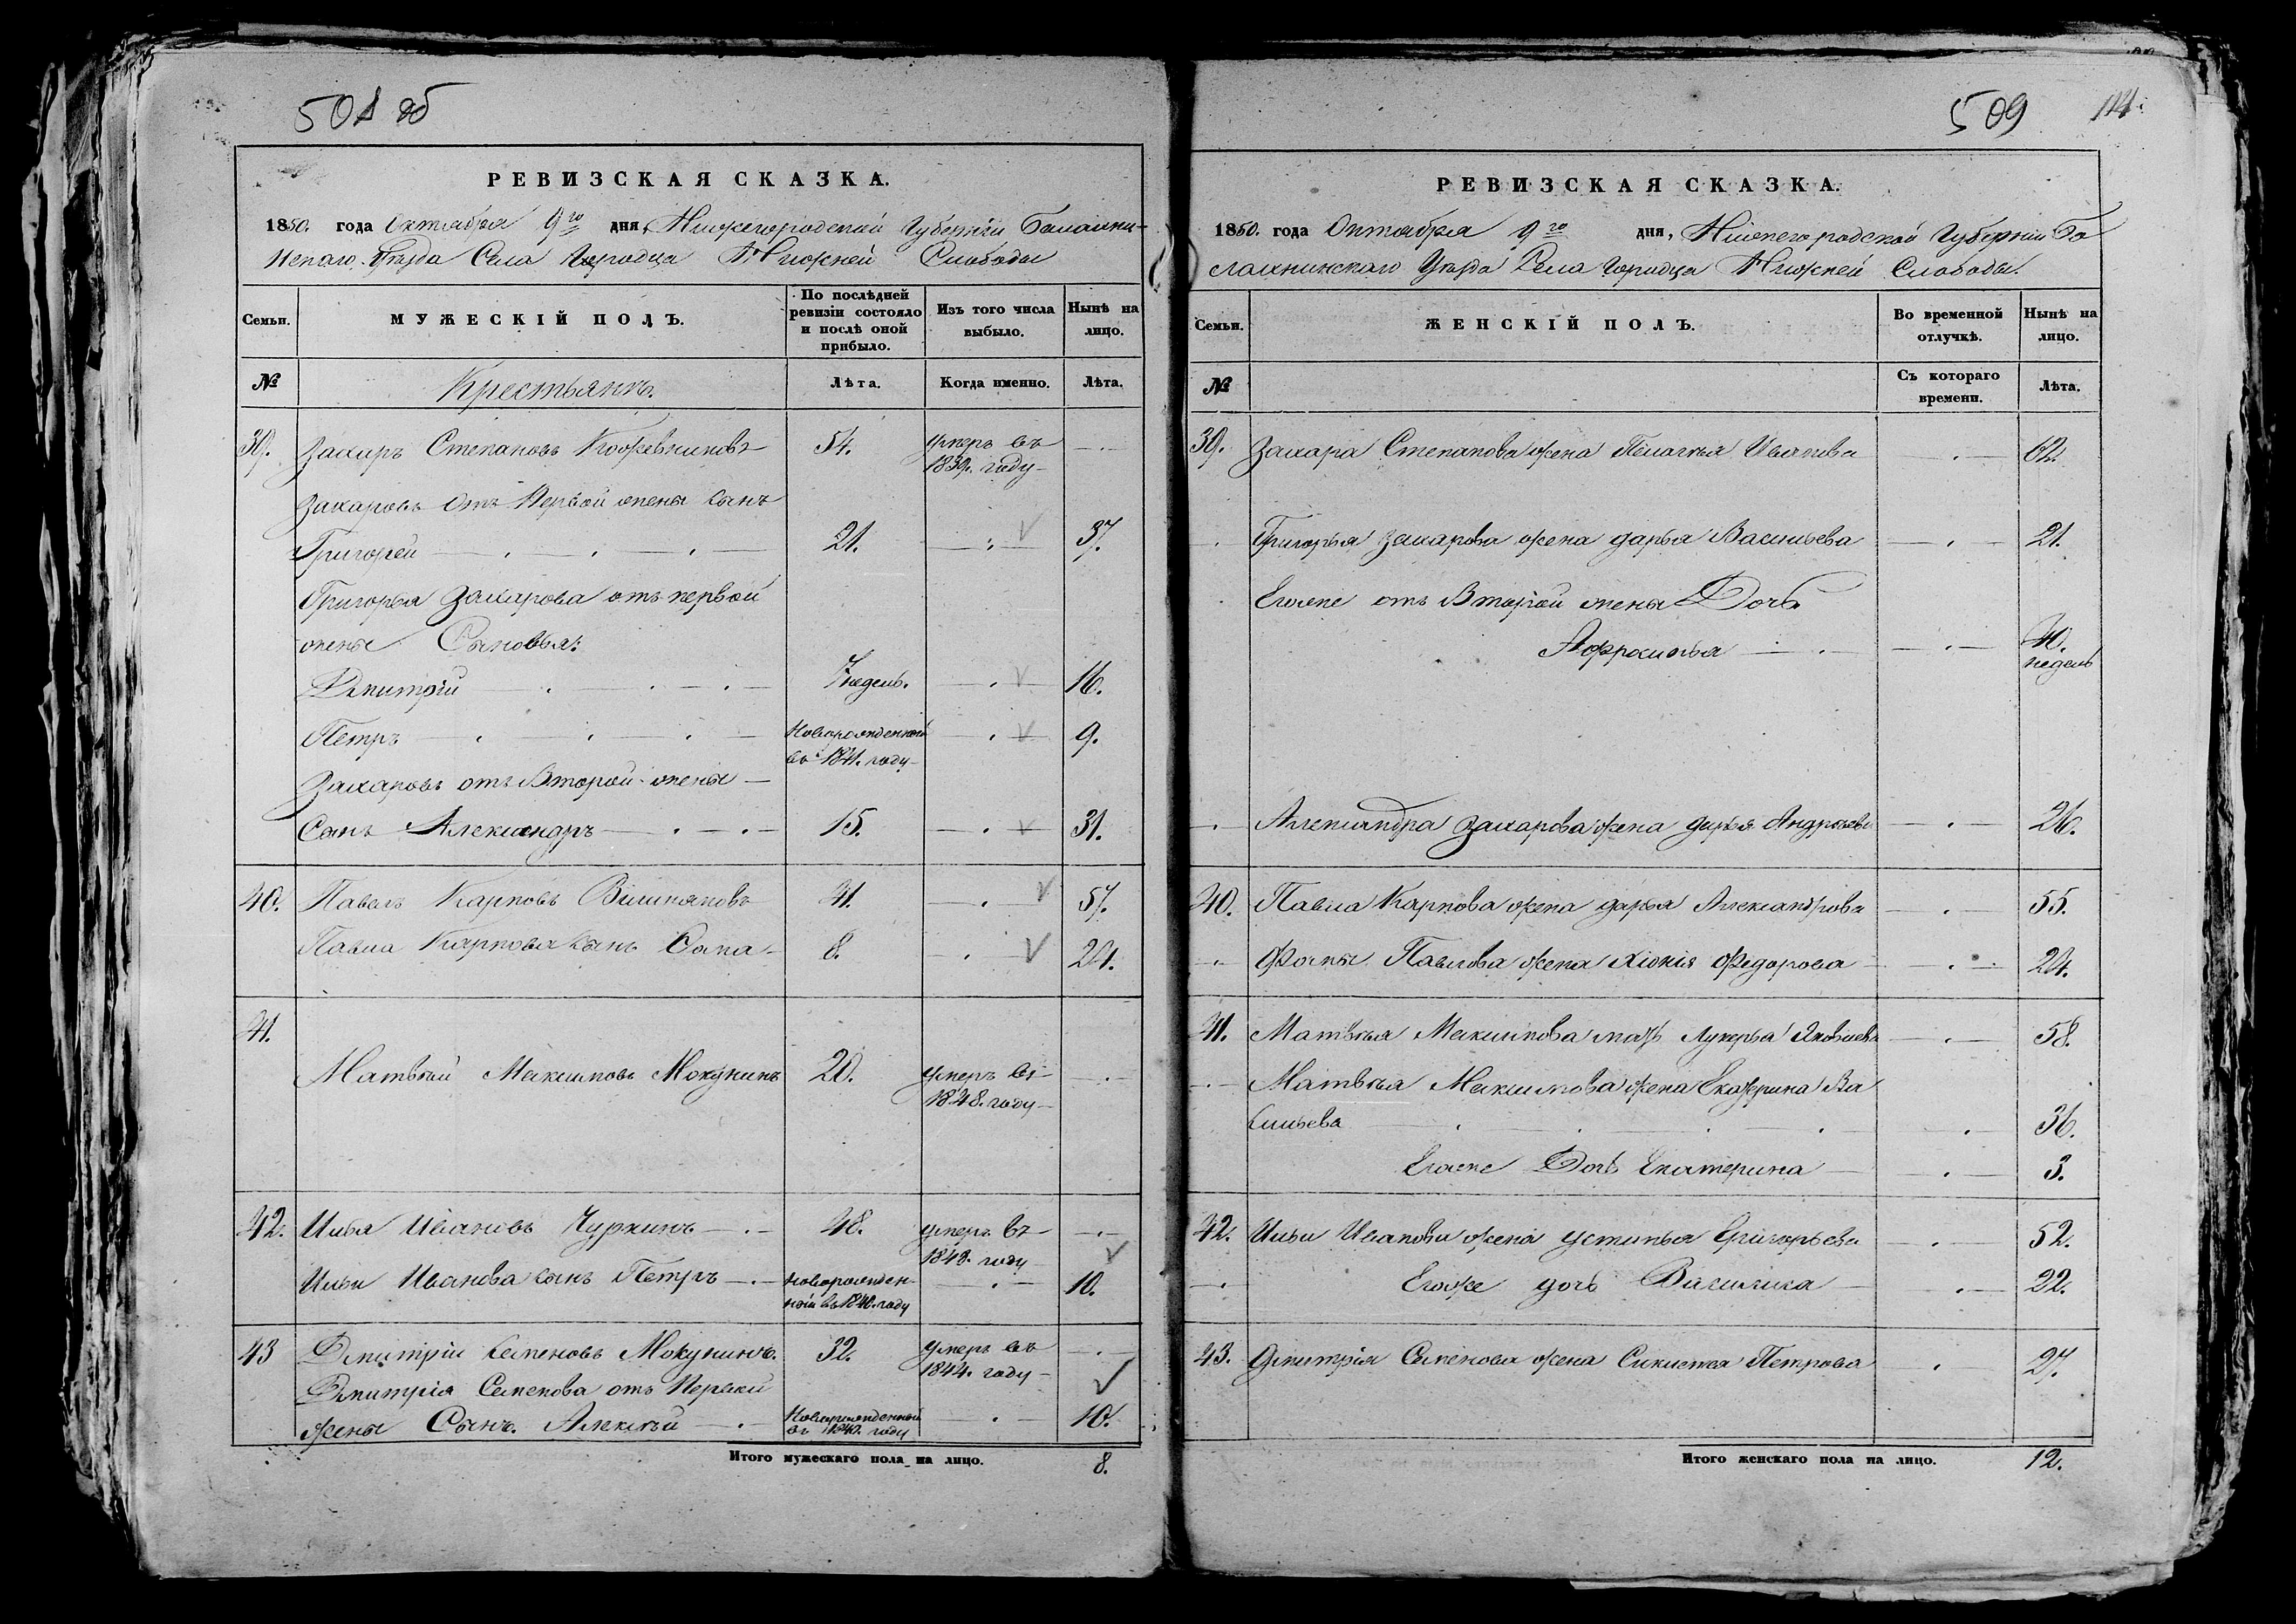 508 об
РЕВИЗСКАЯ СКАЗКА.
1850. года Октября 9го дня, Нижегородской Губерніи Балахни-
нскаго Уѣзда Села Городца Нижней Слободы
Семьи.
МУЖЕСКІЙ ПОЛЪ.
По послѣдней ревизіи состояло и послѣ оной прибыло.
Изъ того числа выбыло.
Нынѣ на лицо.
№
Крестьянъ.
Лѣта.
Когда именно.
Лѣта.
39. Захаръ Степановъ Кожевниковъ 54. умеръ въ 1839. году
Захаровъ отъ Первой жены сынъ
Григорей 21. 37.
Григорья Захарова отъ первой
жены Сыновья:
Дмитрій 7 недель. 16.
Петръ Новорожденный въ 1841. году 9.
Захаровъ отъ Второй жены
Сынъ Александръ 15. 31.
40. Павелъ Карповъ Вишняковъ 41. 57.
Павла Карпова сынъ Фома 8. 24.
41.
Матвѣй Максимовъ Мокунинъ 20. умеръ въ 1848. году
42. Илья Ивановъ Чуркинъ 48. умеръ въ 1848. году
Ильи Иванова сынъ Петръ новорожденный въ 1840. году 10.
43 Дмитрій Семеновъ Мокунинъ. 32. умеръ въ 1844. году
Дмитрія Семенова отъ Первой
жены Сынъ. Алексѣй Новорожденный въ 1840. году 10.
Итого мужескаго пола на лицо. 8.
509
114.
РЕВИЗСКАЯ СКАЗКА.
1850. года Октября 9го дня, Нижегородской Губерніи Ба
лахнинскаго Уѣзда Села Городца Нижней Слободы.
Семьи.
ЖЕНСКІЙ ПОЛЪ.
Во временной отлучкѣ.
Нынѣ на лицо.
№
Съ котораго времени.
Лѣта.
39. Захара Степанова жена Пелагѣя Иванова 62.
Григорья Захарова жена Дарья Васильева 21.
Егоже отъ Второй жены Дочь
Афросинья 40. недель
Александра Захарова жена Дарья Андреева 26.
40. Павла Карпова жена Дарья Александрова 55.
Фомы Павлова жена Хіонія Федорова 24.
41. Матвѣя Максимова мать Лукерья Яковлева 58.
Матвѣя Максимова жена Екатерина Ва
сильева 36.
Егоже Дочь Екатерина 3.
42. Ильи Иванова жена Устинья Григорьева 52.
Егоже дочь Василиса 22.
43. Дмитрія Семенова жена Петрова 27.
Итого женскаго пола на лицо. 12.